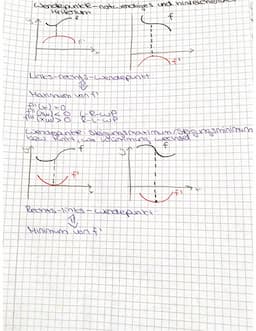 Wendepunkte - notwendiges und hinreichendes
Kriterium
f
f'
f
f'
Links-rechts-Wendepunkt
Maximum von f'
f''(xw) = 0
f'''(xw) < 0 L-R-WP
f'''(xw) > 0 R-L-WP
Wendepunkte: Steigungsmaximum/Steigungsminimum
bzw. Punkt, wo Krümmung wechselt
f
f'
f
f'
Rechts-links-Wendepunkt
Minimum von f'